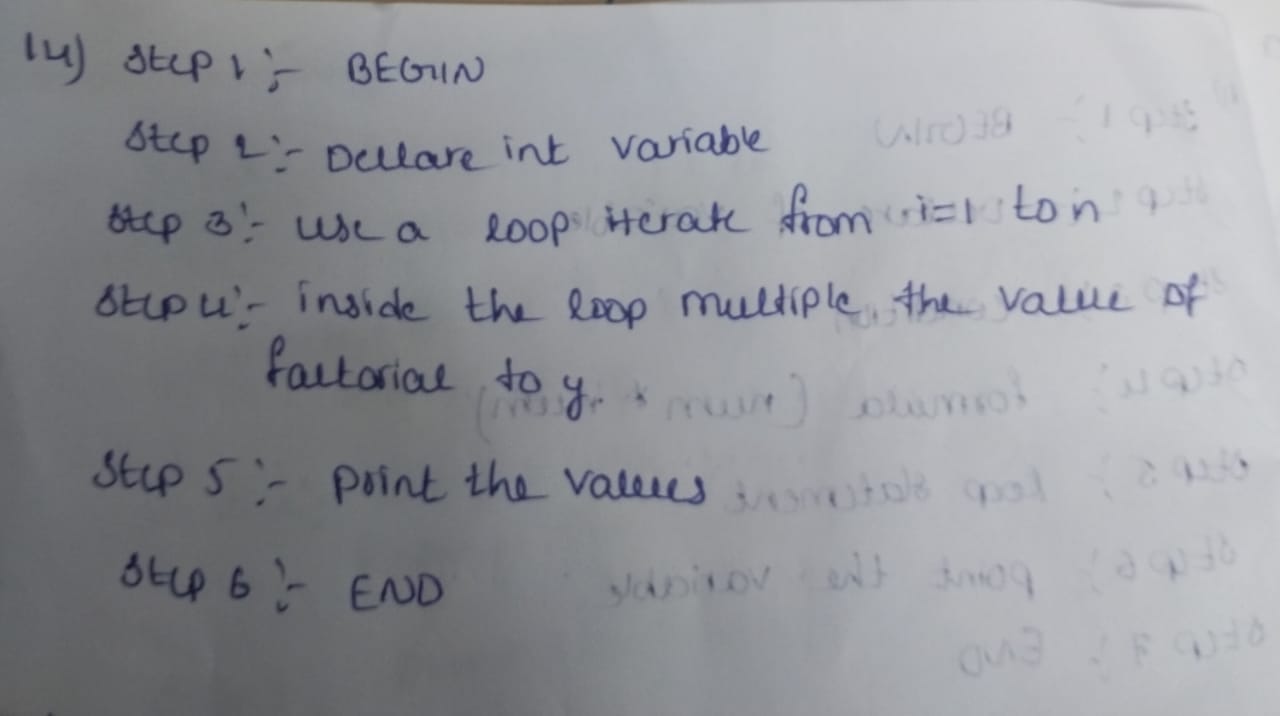 14) Step 1 :- BEGIN
Step 2 :- Declare int variable
Step 3 :- Use a loop iterate from i=1 to n
Step 4 :- inside the loop multiple the value of
factorial to y.
Step 5 :- point the values
Step 6 :- END